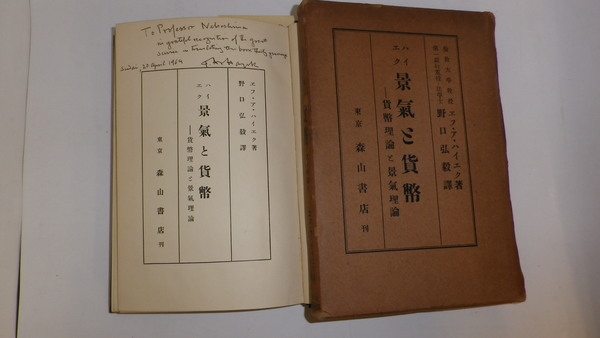 To Professor
in grateful recognition of the great
service in translating this book thirty years ago
London 23 April 1964
F A Hayek
エフ・ア・ハイエク著
野口弘毅譯
ハイエク
景氣と貨幣
——貨幣理論と景氣理論
東京 森山書店 刊
エフ・ア・ハイエク著
野口弘毅譯
ハイエク
景氣と貨幣
——貨幣理論と景氣理論
東京 森山書店 刊